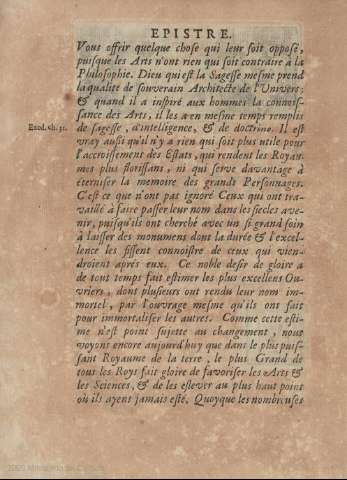 EPISTRE.
Vous offrir quelque chose qui leur soit opposé,
puisque les Arts n'ont rien qui soit contraire à la
Philosophie. Dieu qui est la Sagesse mesme prend
la qualité de souverain Architecte de l'Univers;
& quand il a inspiré aux hommes la connois-
sance des Arts, il les a en mesme temps remplis
Exod. ch. 31. de sagesse, d'intelligence, & de doctrine. Il est
vray aussi qu'il n'y a rien qui soit plus utile pour
l'accroissement des Estats, qui rendent les Royau-
mes plus florissans, ni qui serve davantage à
éterniser la memoire des grands Personnages.
C'est ce que n'ont pas ignoré Ceux qui ont tra-
vaillé à faire passer leur nom dans les siecles ave-
nir, puisqu'ils ont cherché avec un si grand soin
à laisser des monumens dont la durée & l'excel-
lence les fissent connoistre de ceux qui vien-
droient aprés eux. Ce noble desir de gloire a
de tout temps fait estimer les plus excellens Ou-
vriers, dont plusieurs ont rendu leur nom im-
mortel, par l'ouvrage mesme qu'ils ont fait
pour immortaliser les autres. Comme cette esti-
me n'est point sujette au changement, nous
voyons encore aujourd'huy que dans le plus puis-
sant Royaume de la terre, le plus Grand de
tous les Roys fait gloire de favoriser les Arts &
les Sciences, & de les eslever au plus haut point
où ils ayent jamais esté. Quoyque les nombreuses